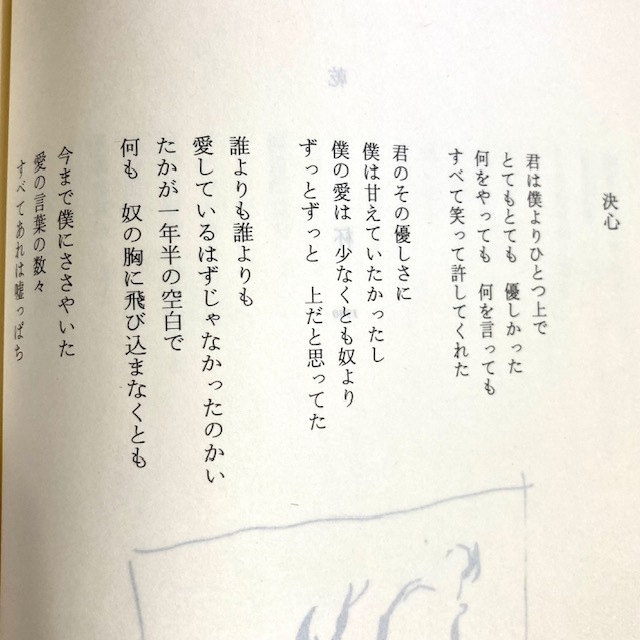 決心
君は僕よりひとつ上で
とてもとても　優しかった
何をやっても　何を言っても
すべて笑って許してくれた
君のその優しさに
僕は甘えていたかったし
僕の愛は　少なくとも奴より
ずっとずっと　上だと思ってた
誰よりも誰よりも
愛しているはずじゃなかったのかい
たかが一年半の空白で
何も　奴の胸に飛び込まなくとも
今まで僕にささやいた
愛の言葉の数々
すべてあれは嘘っぱち